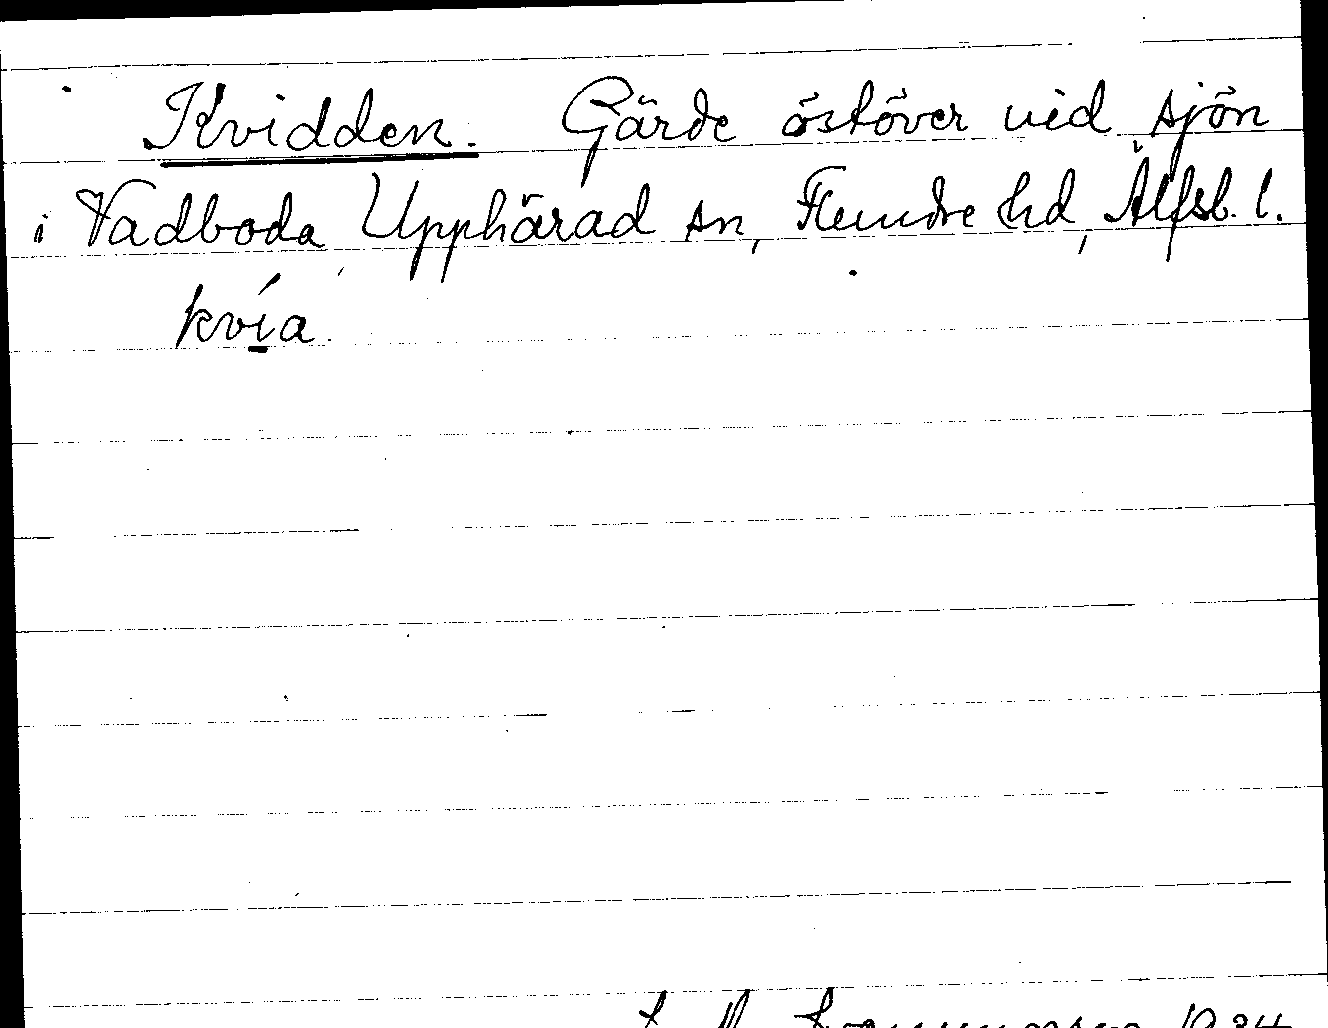 Kvidden. Gärde östöver vid sjön
i Vadboda Upphärad sn, Flundre hd, Älfsb. l.
kvía.
1934